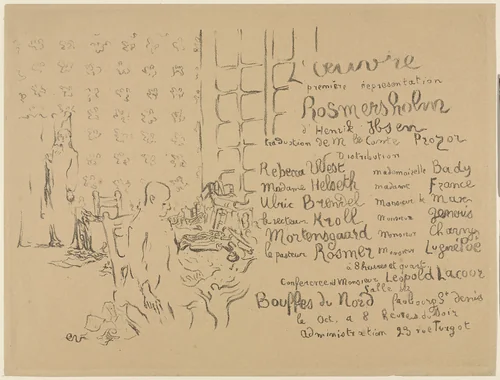 L'œuvre
première représentation
Rosmersholm
d'Henrik Ibsen
traduction de M. le Comte Prozor
Distribution
Rebecca West mademoiselle Bady
Madame Helseth madame France
Ulric Brendel Monsieur
le recteur Kroll Monsieur
Mortensgaard Monsieur Charny
le pasteur Rosmer Monsieur Lugné Poe
à 8 heures et quart
Conférence de Monsieur Léopold Lacour
Salle des
Bouffes du Nord faubourg St Denis
le Oct, à 8 heures du soir
administration 23 rue Turgot
ev